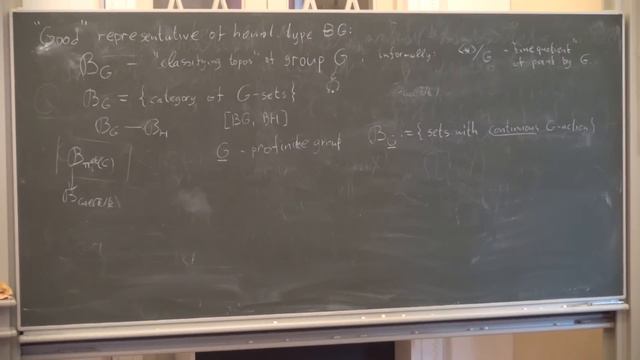 "Good" representative of homot. type BG:
B_G – "classifying topos" of group G, informally: {*}/G – "fine quotient" of point by G.
B_G = {category of G-sets}
B_G — B_H [BG, BH]
G - profinite group B_G := {sets with continuous G-action}
B_Gal(k̄/k)